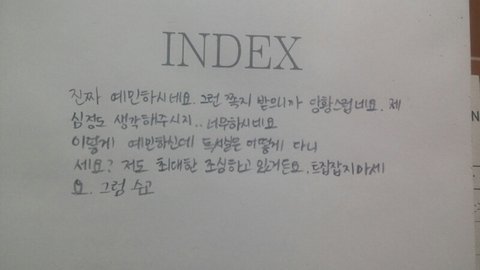 INDEX
진짜 예민하시네요. 그런 쪽지 받으니까 당황스럽네요. 제
심정도 생각해주시지.. 너무하시네요
이렇게 예민하신데 독서실은 어떻게 다니
세요? 저도 최대한 조심하고 있거든요. 트집잡지마세
요. 그럼 수고